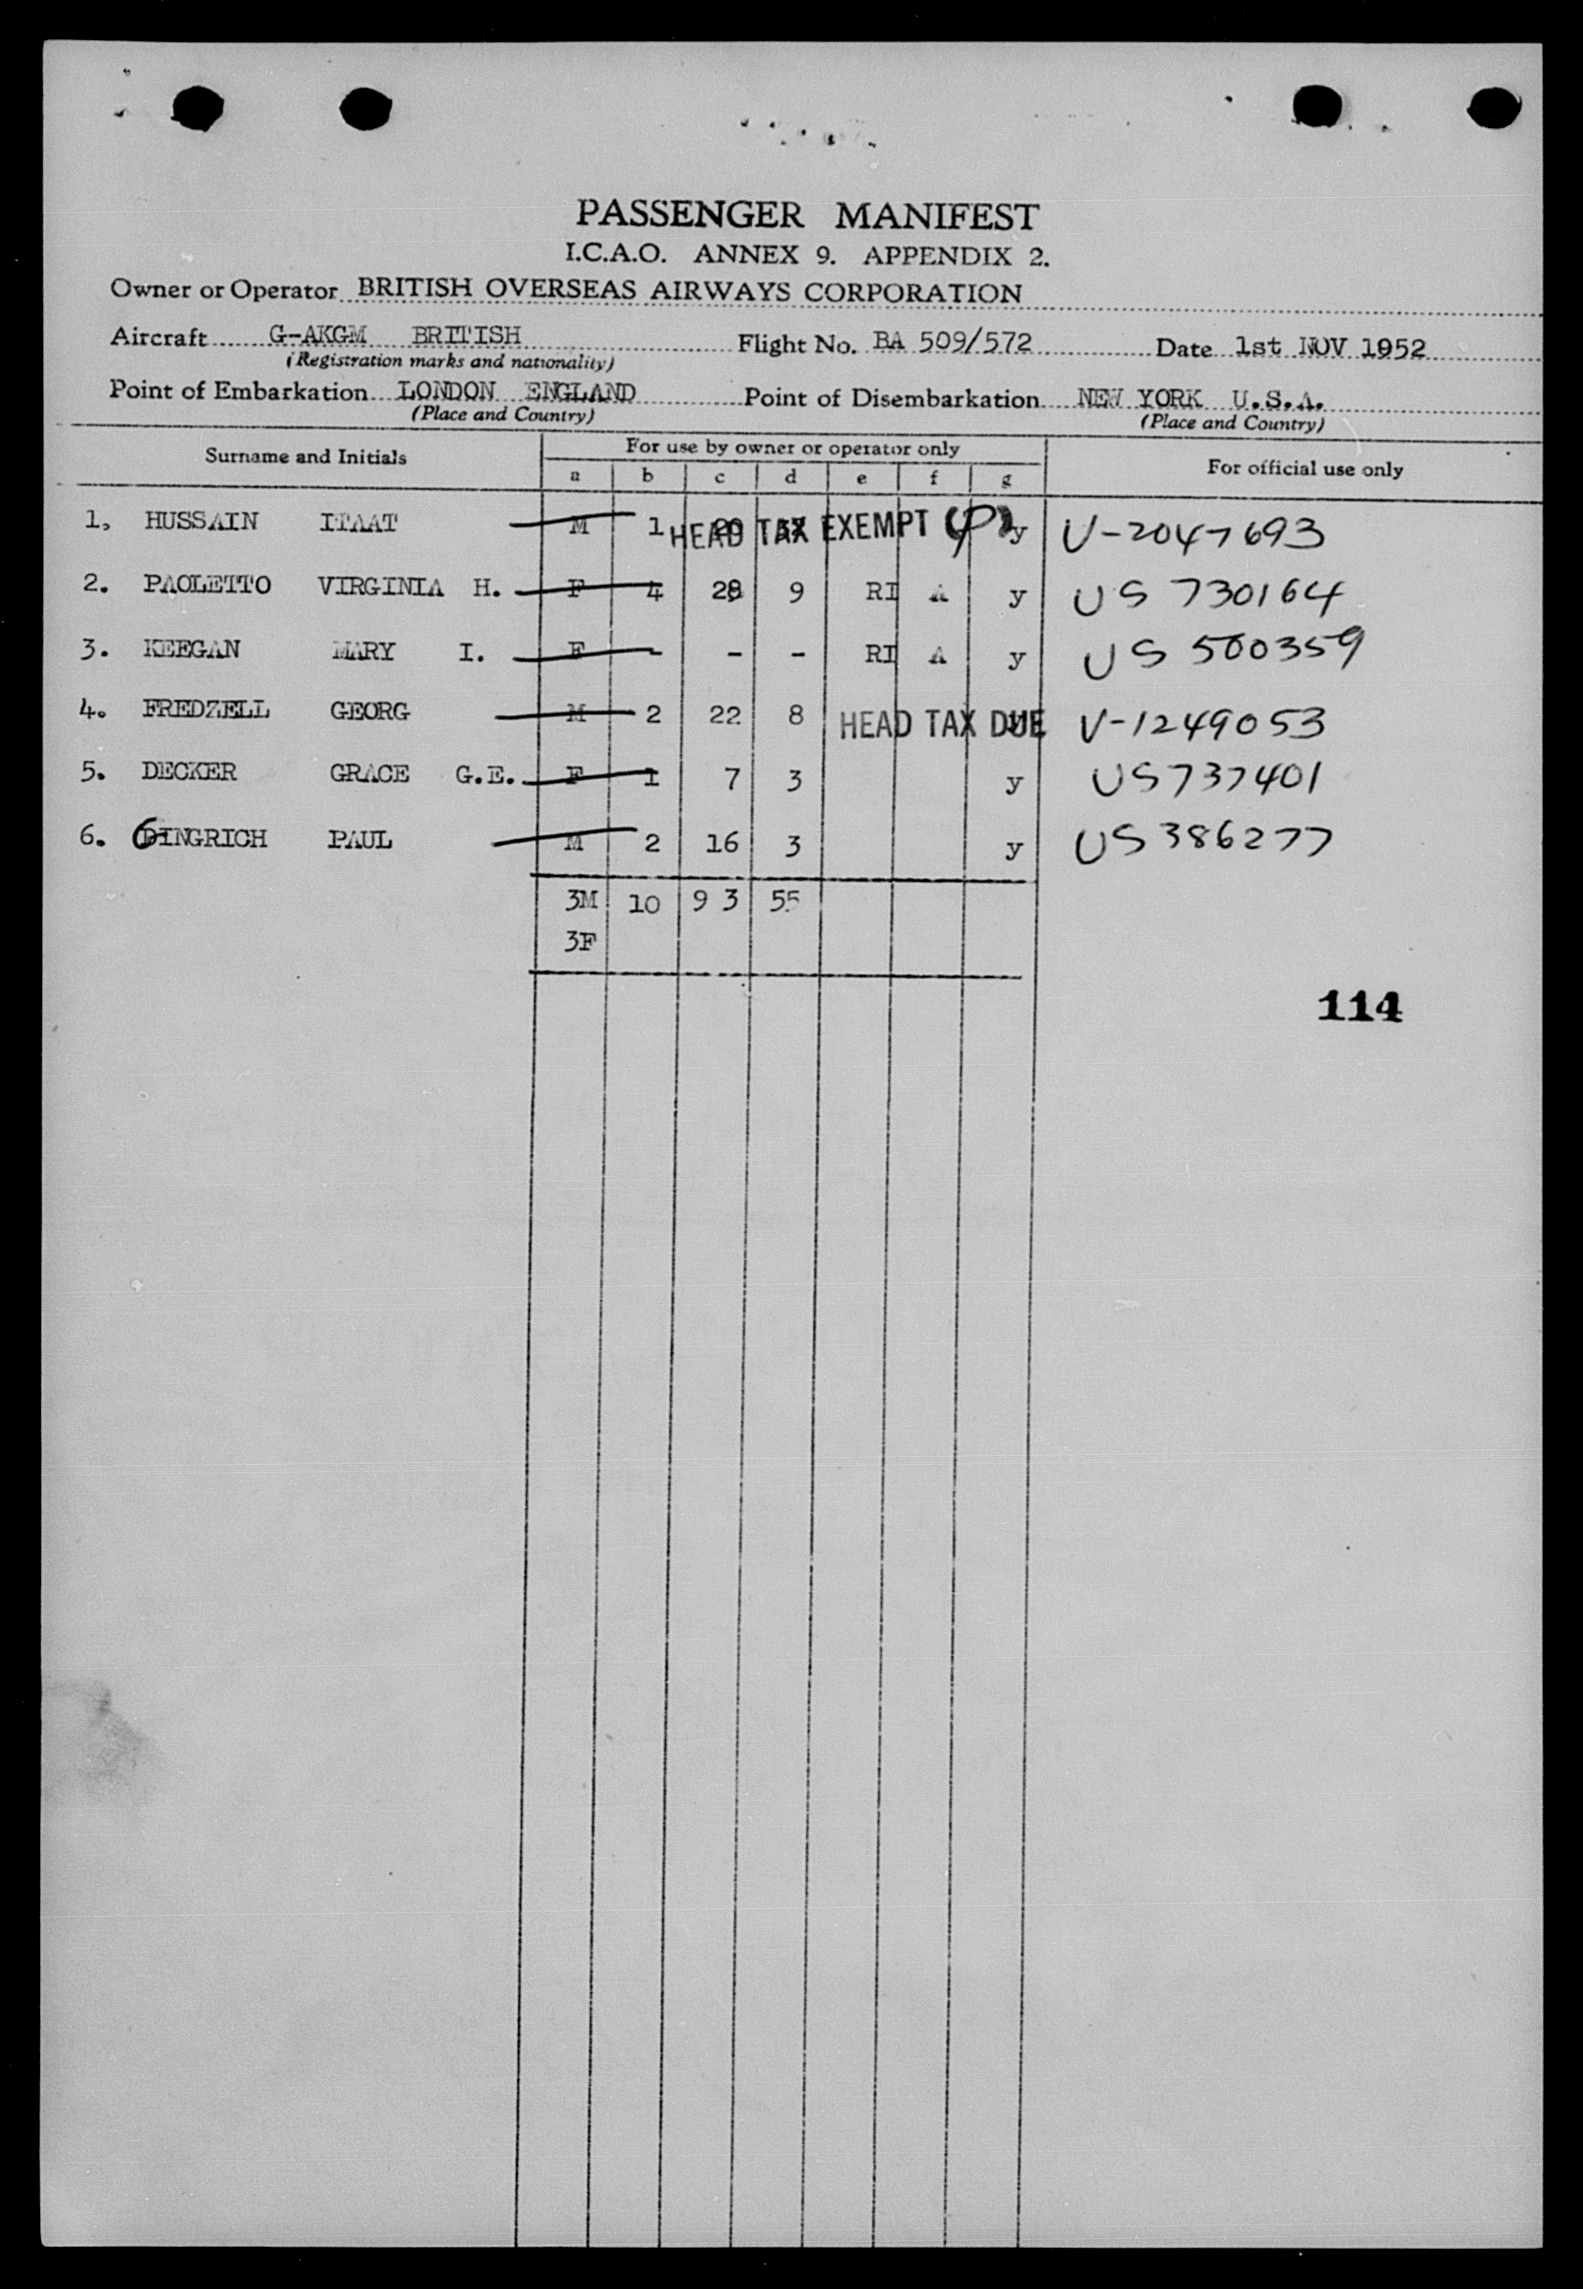 PASSENGER MANIFEST
I.C.A.O. ANNEX 9. APPENDIX 2.
Owner or Operator BRITISH OVERSEAS AIRWAYS CORPORATION
Aircraft G-AKGM BRITISH Flight No. BA 509/572 Date 1st NOV 1952
(Registration marks and nationality)
Point of Embarkation LONDON ENGLAND Point of Disembarkation NEW YORK U.S.A.
(Place and Country) (Place and Country)
Surname and Initials For use by owner or operator only For official use only
a b c d e f g
1. HUSSAIN ITAAT M 1 HEAD TAX EXEMPT y V-2047693
2. PAOLETTO VIRGINIA H. F 4 28 9 RI A y US 730164
3. KEEGAN MARY I. F - - - RI A y US 500359
4. FREDZELL GEORG M 2 22 8 HEAD TAX DUE V-1249053
5. DECKER GRACE G.E. F 1 7 3 y US737401
6. GINGRICH PAUL M 2 16 3 y US 386277
3M 10 9 3 55
3F
114